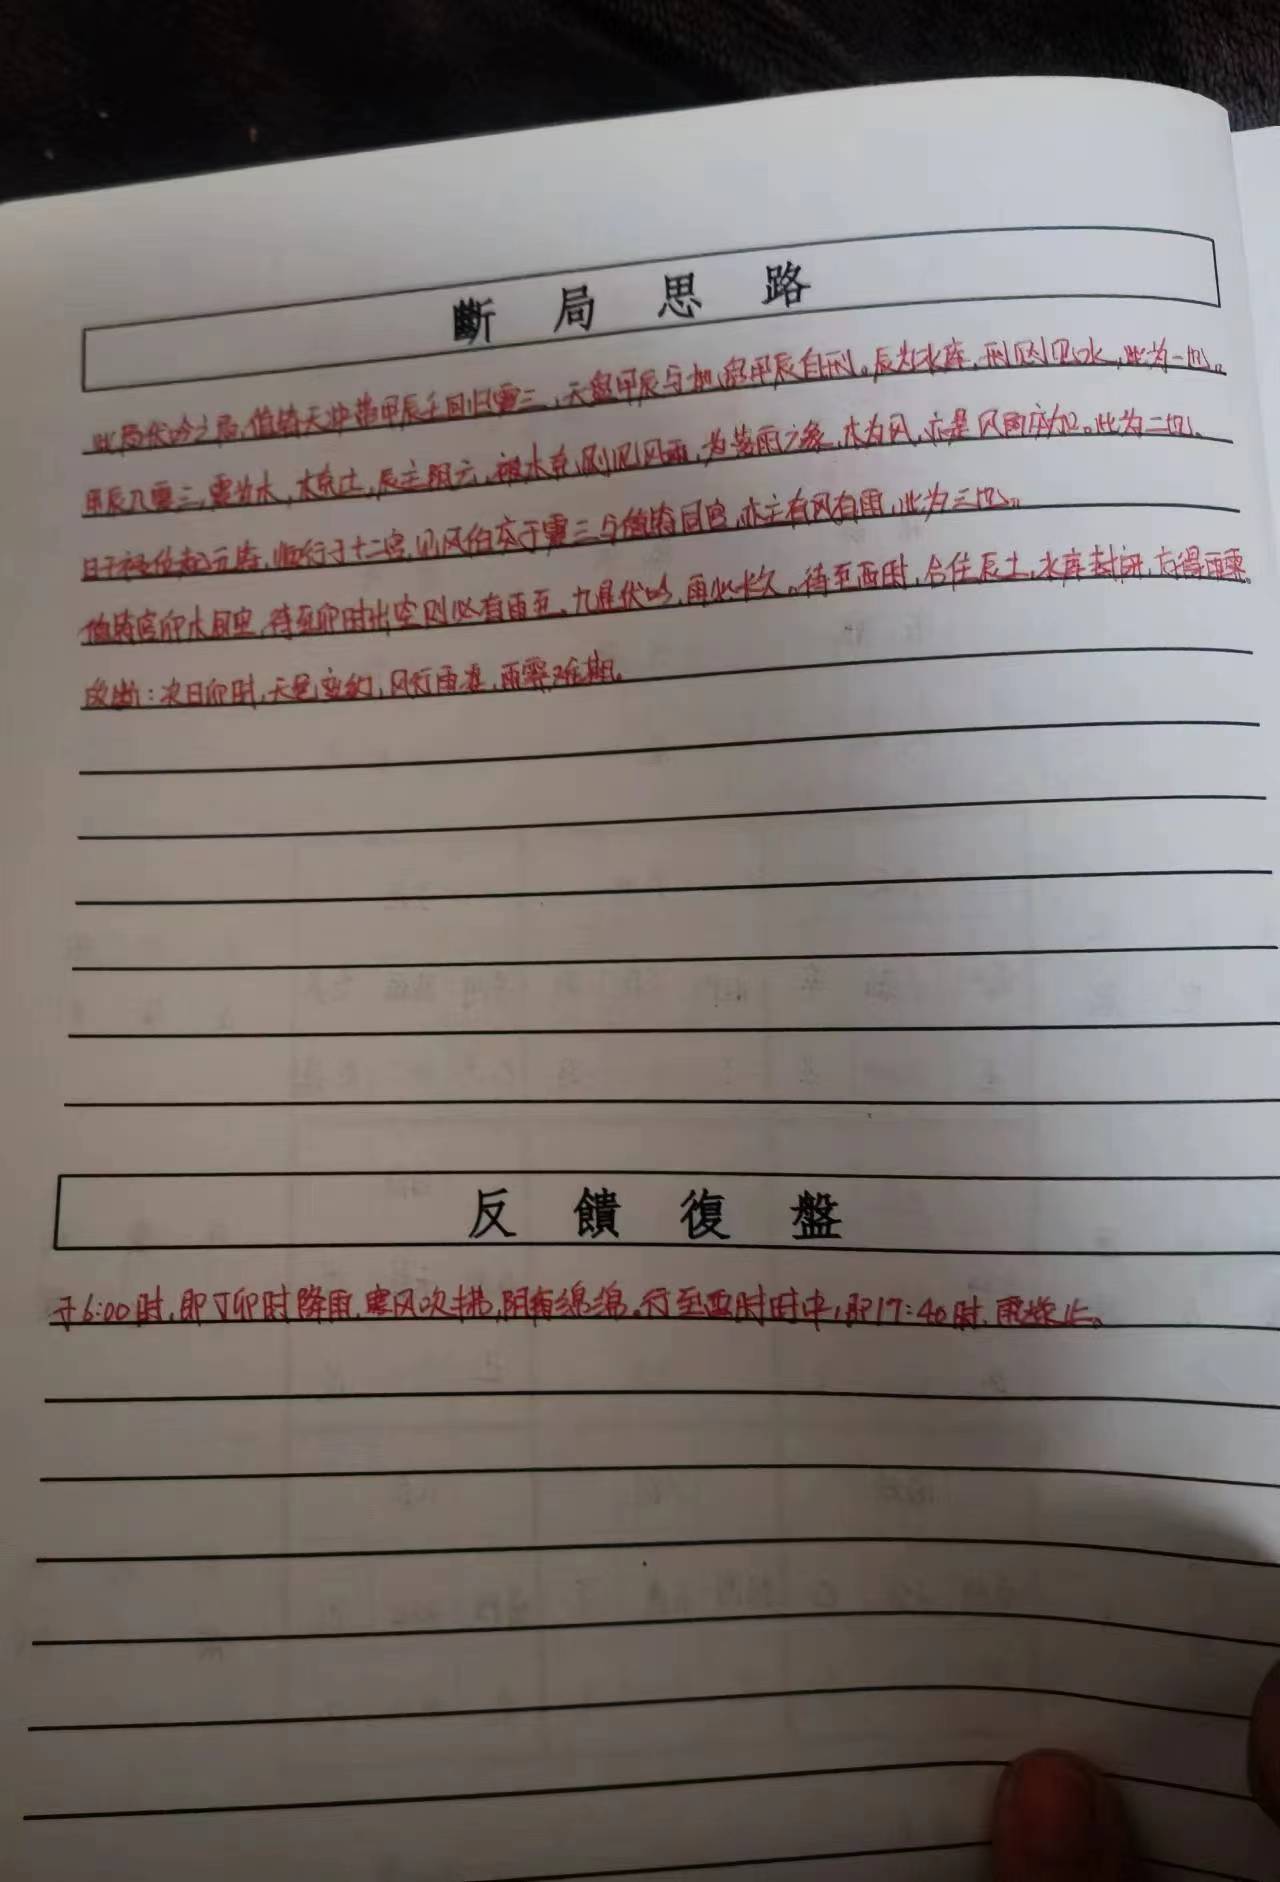 斷局思路
此局伏吟之局,值符天冲带甲辰壬回归震三,天盘甲辰与地盘甲辰自刑。辰为水库,刑则见水,此为一也。
甲辰入震三,震为木,木克土,辰主阴云,被木克,则见风雨,为落雨之象,木为风,亦是风雨交加。此为二也、
日干禄位起元,顺行于十二宫,见风伯落于震三与值符同宫,亦主有风有雨,此为三也。
值符宫卯木旬空,待至卯时出空则必有雨至。九星伏吟,雨必长久。待至酉时,合住辰土,水库封闭,方得雨霁。
故断:次日卯时,天色变幻,风行雨落,雨霁难期。
反饋復盤
于6:00时,即丁卯时降雨,寒风吹拂,阴雨绵绵。行至酉时时中,即17:40时,雨停止。